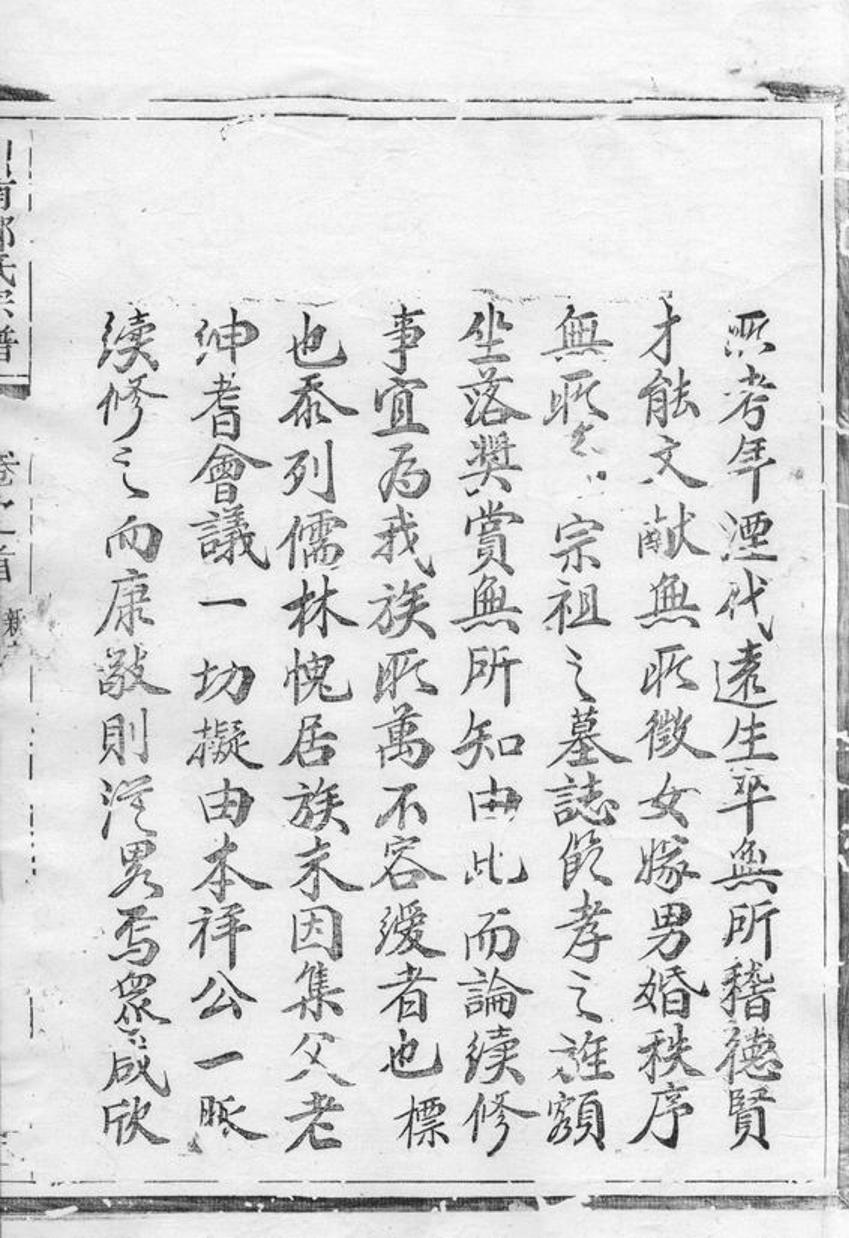 所考年湮代遠生卒無所稽德賢
才能文献無所徵女嫁男婚秩序
無所 宗祖之墓誌節孝之旌額
坐落獎賞無所知由此而論續修
事宜為我族所萬不容緩者也標
也忝列儒林愧居族末因集父老
紳耆會議一切擬由本祥公一脈
續修之而康敬則從畧焉眾咸欣
氏宗譜
卷之首